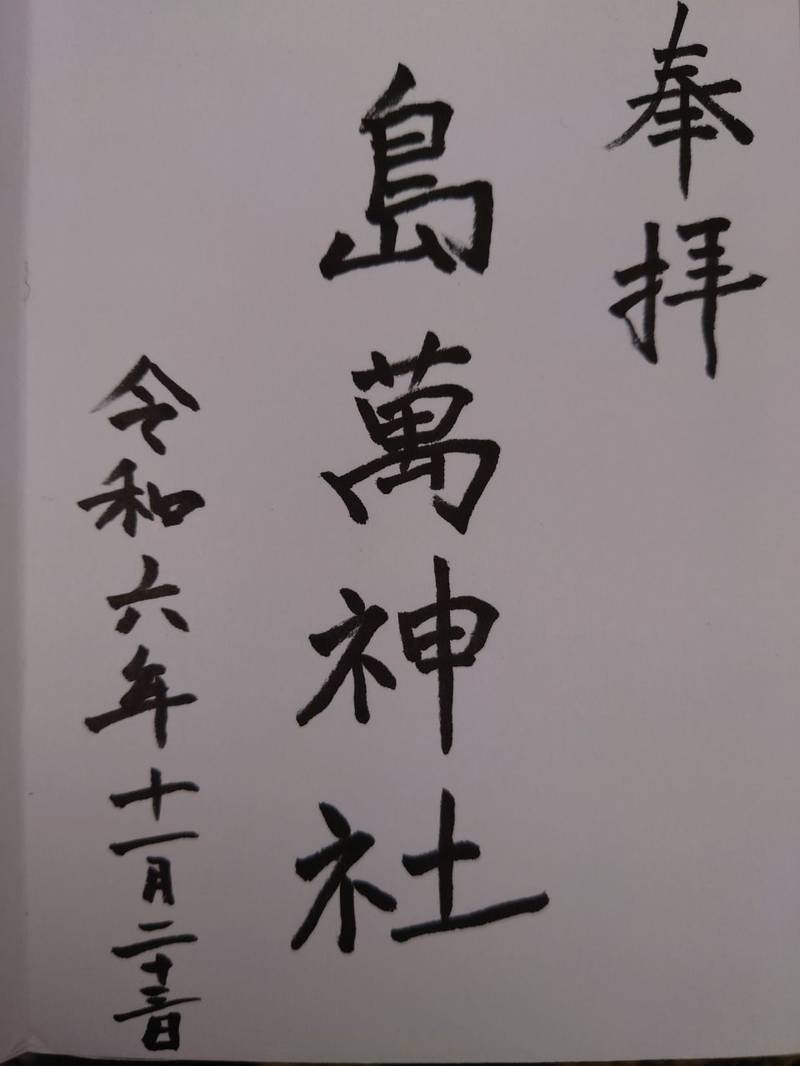 奉拝
島萬神社
令和六年十一月二十三日